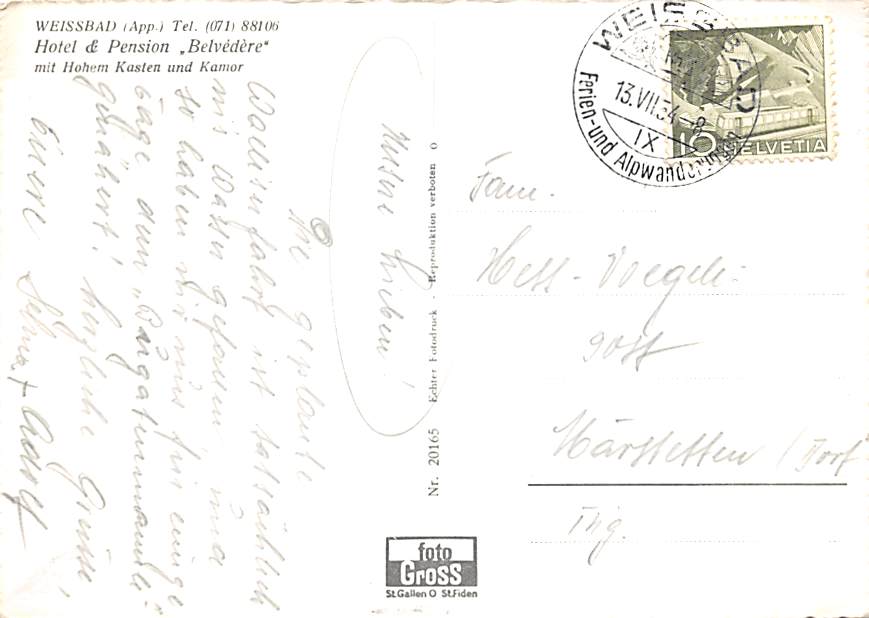 WEISSBAD (App.) Tel. (071) 88106
Hotel & Pension „Belvédère“
mit Hohem Kasten und Kamor
Meine Lieben!
Die geplante
Walliserfahrt ist tatsächlich
ins Wasser gefallen und
so haben wir uns für einige
Tage dem
genähert! herzliche Grüsse!
Eure Selma + Adolf
Nr. 20165 Echter Fotodruck - Reproduktion verboten O
foto
Gross
St.Gallen O St.Fiden
WEISSBAD
13.VII.54-8
IX
Ferien- und Alpwandergebiet
10
HELVETIA
Fam.
Hess-Voegeli
Post
Märstetten (Dorf
Thg.